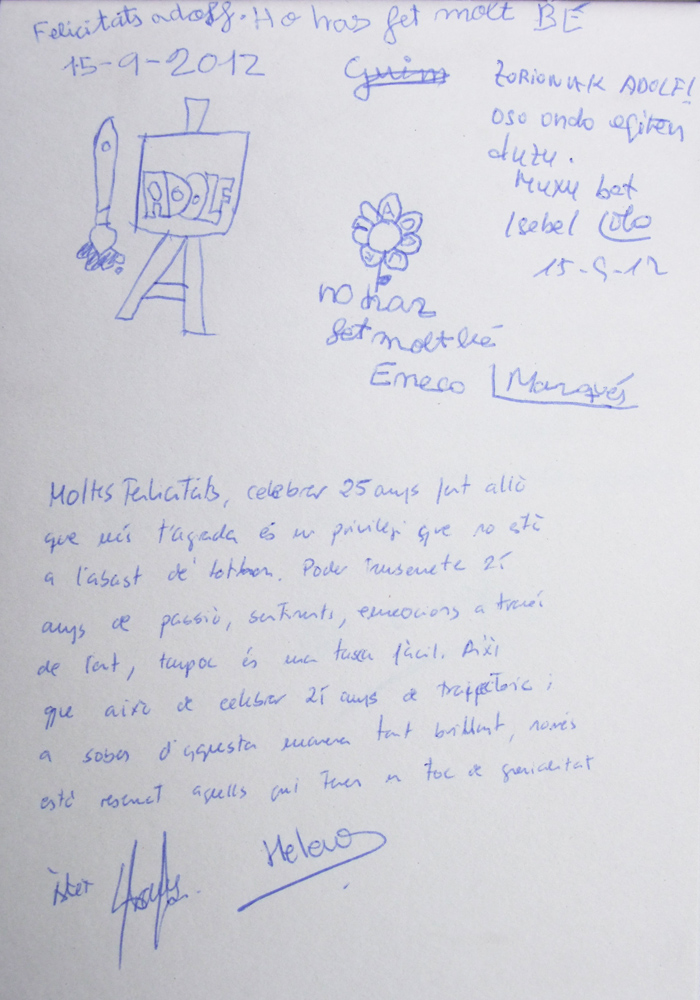 Felicitats adolf. Ho has fet molt BÉ
15-9-2012
Guim
ADOLF
ZORIONAK ADOLF!
oso ondo egiten
duzu.
Muxu bat
Isabel
15-9-12
ho has
fet molt bé
Eneco Marqués
Moltes Felicitats, celebrar 25 anys fent allò
que més t'agrada és un privilegi que no està
a l'abast de tothom. Poder transmetre 25
anys de passió, sentiments, emocions a través
de l'art, tampoc és una tasca fàcil. Així
que això de celebrar 25 anys de trajectòria i
a sobre d'aquesta manera tant brillant, només
està reservat aquells qui tenen un toc de genialitat
Ester
Helena